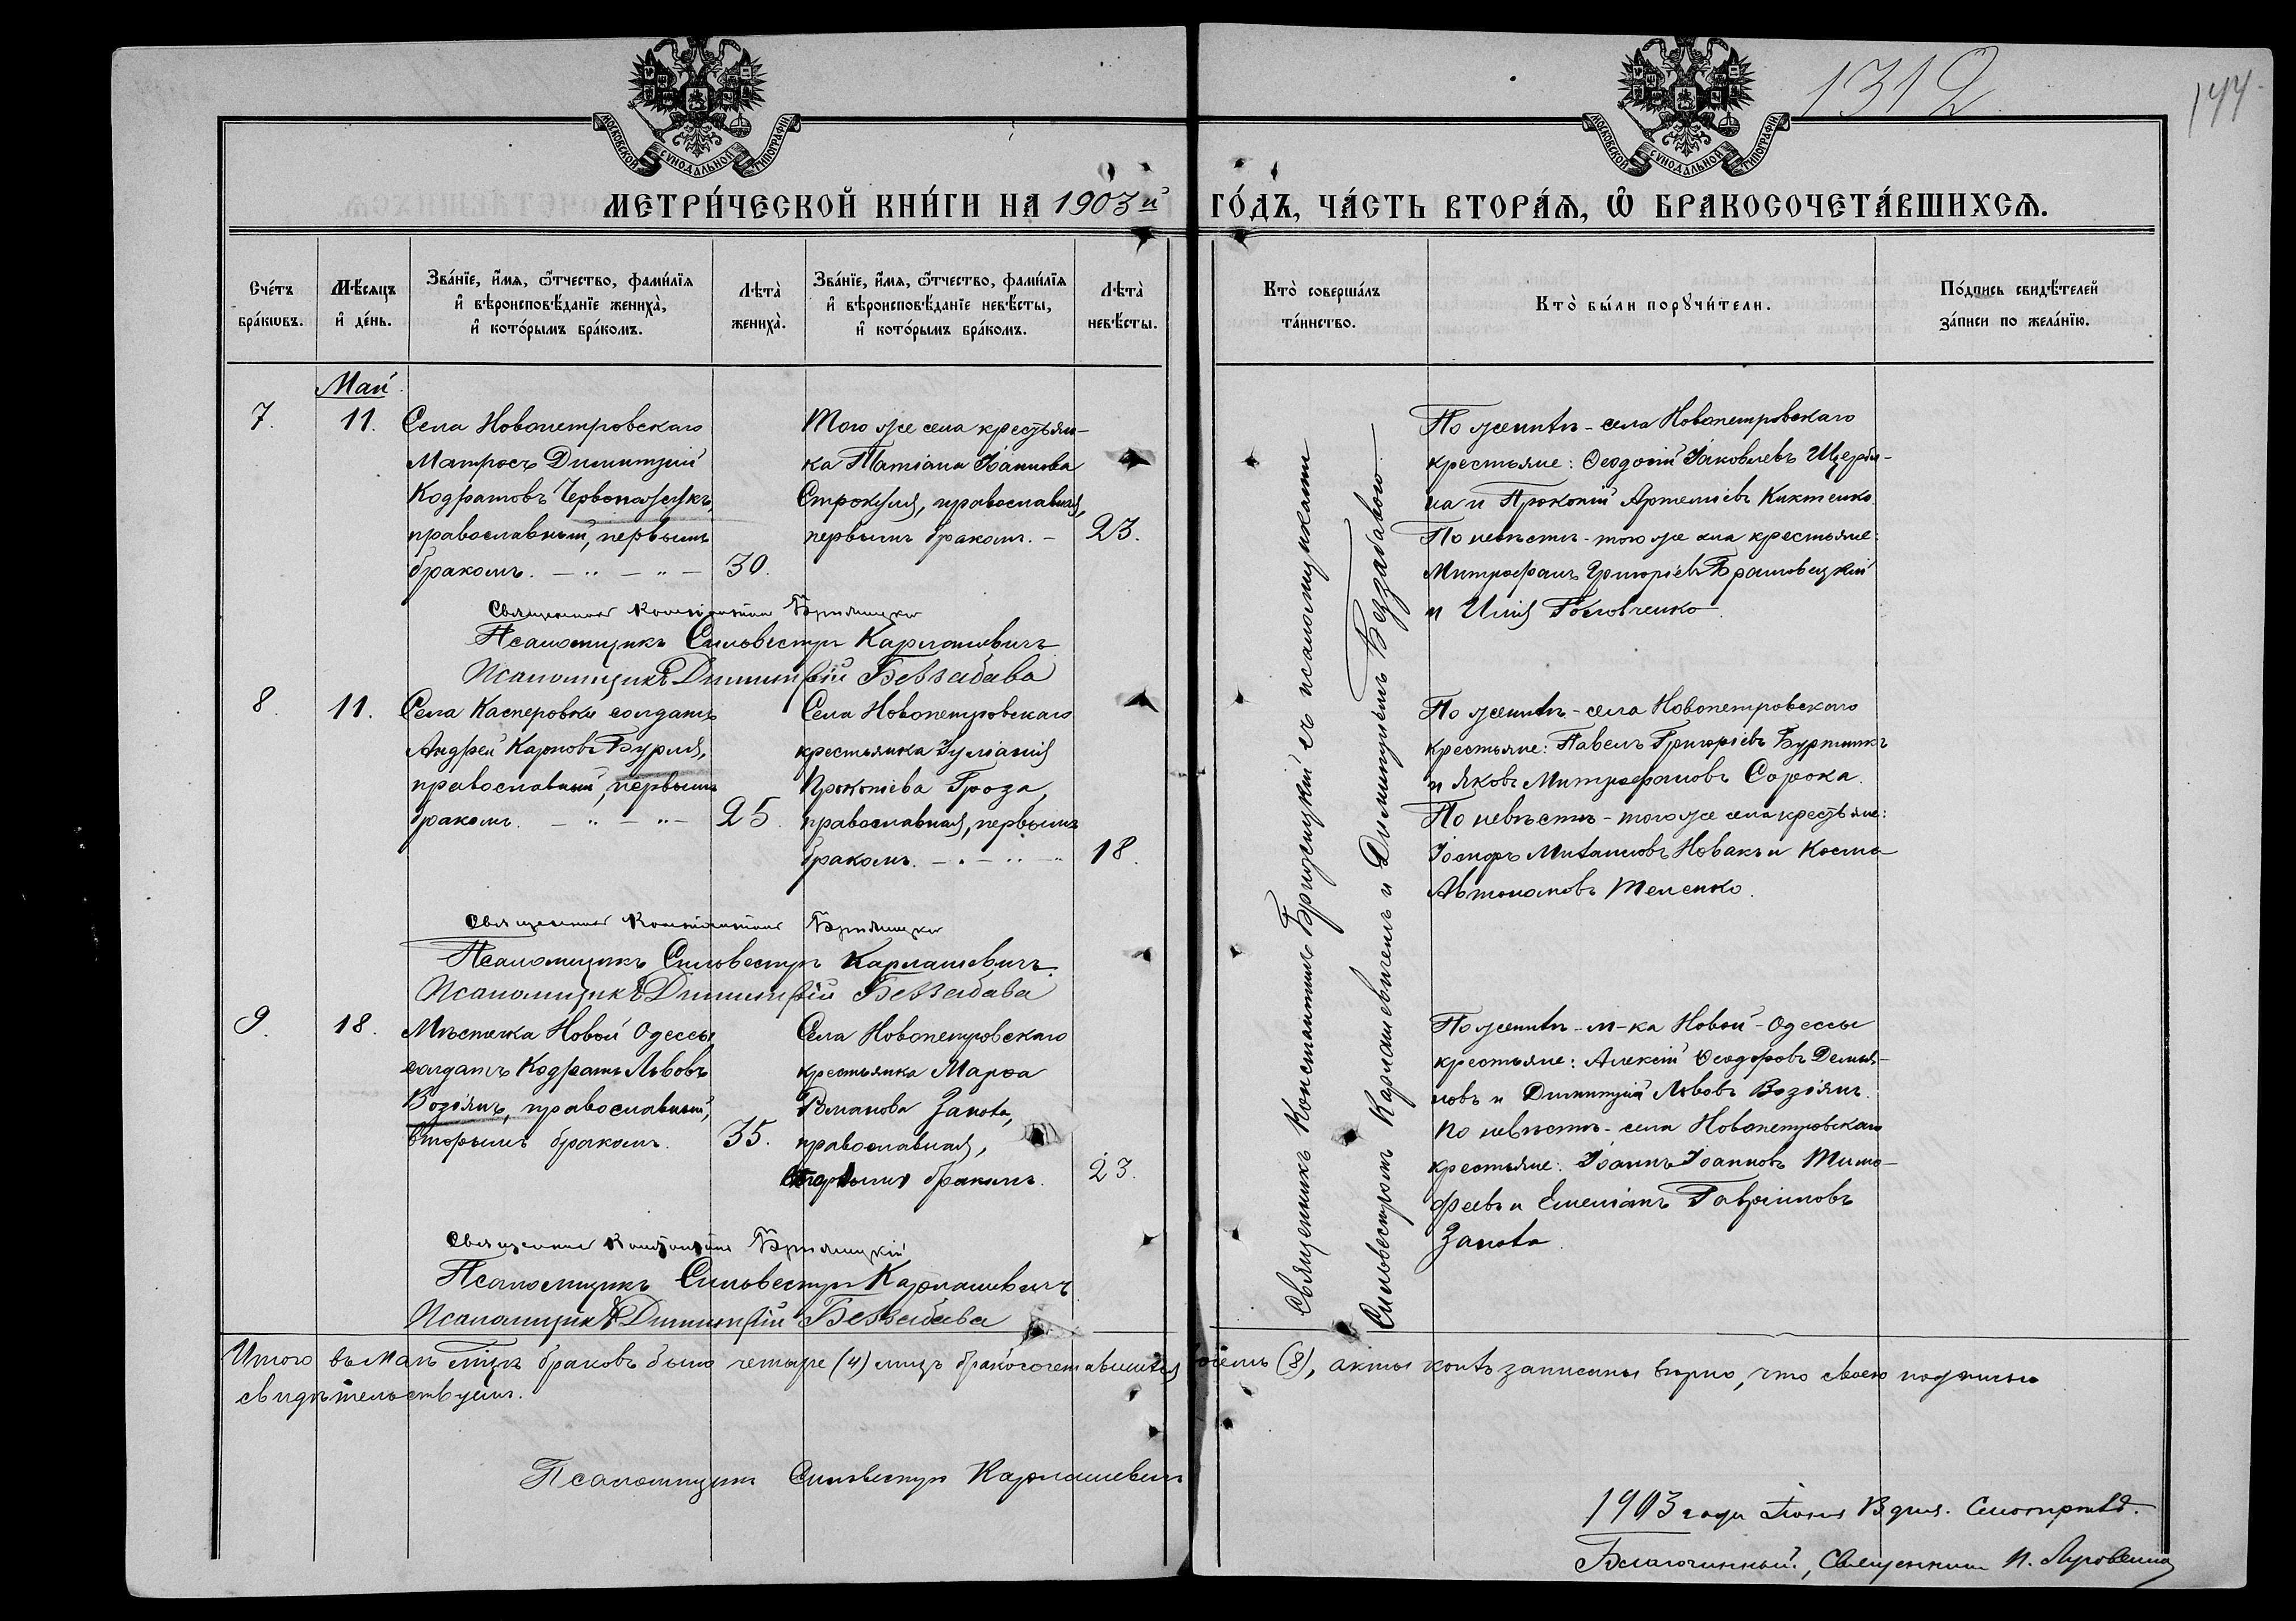 1312
144
МОСКОВСКОЙ СѴНОДАЛЬНОЙ ТИПОГРАФІИ
МОСКОВСКОЙ СѴНОДАЛЬНОЙ ТИПОГРАФІИ
МЕТРИ́ЧЕСКОЙ КНИ́ГИ НА 1903й ГО́ДЪ, ЧА́СТЬ ВТОРА́Я, Ѡ҆ БРАКОСОЧЕТА́ВШИХСЯ.
Сче́тъ
бра́кѡвъ.
Мѣ́сяцъ
и҆ де́нь.
Зва́нїе, и҆́мя, ѻ҆́тчество, фами́лїя
и҆ вѣроисповѣ́данїе жениха̀,
и҆ кото́рымъ бра́комъ.
Лѣта̀
жениха̀.
Зва́нїе, и҆́мя, ѻ҆́тчество, фами́лїя
и҆ вѣроисповѣ́данїе невѣ́сты,
и҆ кото́рымъ бра́комъ.
Лѣта̀
невѣ́сты.
Кто̀ соверша́лъ
та́инство.
Кто̀ бы́ли порꙋчи́тели.
По́дпись свидѣ́телей
за́писи по жела́нїю.
Май
7.
11.
Села Новопетровскаго
Матросъ Димитрій
Кодратовъ Червонажукъ,
православный, первымъ
бракомъ. — " — " —
30.
Того же села крестьян-
ка Татіана Іоаннова
Строкуля, православная,
первымъ бракомъ. —
23.
По женихѣ - села Новопетровскаго
крестьяне: Ѳеодосій Іаковлевъ Щерби-
на и Прокопій Артеміевъ Киктенко.
По невѣстѣ - того же села крестьяне:
Митрофанъ Григоріевъ Брановицкій
и Илія Головченко.
Священникъ Константинъ
Псаломщикъ Сильвестръ Карпашевичъ
Псаломщикъ Димитрій Беззабава
8.
11.
Села Касперовки солдатъ
Андрей Карповъ Бурля,
православный, первымъ
бракомъ. — " — " —
25.
Села Новопетровскаго
крестьянка Іуліанія
Прокопіева Гроза,
православная, первымъ
бракомъ. — " — " —
18.
По женихѣ - села Новопетровскаго
крестьяне: Павелъ Григоріевъ Буртникъ
и Яковъ Митрофановъ Сорока.
По невѣстѣ - того же села крестьяне:
Іосифъ Михаиловъ Новакъ и Косма
Автономовъ Теленко.
Священникъ Константинъ
Псаломщикъ Сильвестръ Карпашевичъ
Псаломщикъ Димитрій Беззабава
9.
18.
Мѣстечка Новой Одессы
солдатъ Кодратъ Львовъ
Возіянъ, православный,
вторымъ бракомъ.
35.
Села Новопетровскаго
крестьянка Марѳа
Романова Заноха,
православная,
бракомъ.
23.
По женихѣ - м-ка Новой-Одессы
крестьяне: Алексій Ѳеодоровъ Демья-
новъ и Димитрій Львовъ Возіянъ.
По невѣстѣ - села Новопетровскаго
крестьяне: Іоаннъ Іоанновъ Тимо-
феевъ и Емеліанъ Гавріиловъ
Заноха.
Священникъ Константинъ
Псаломщикъ Сильвестръ Карпашевичъ
Псаломщикъ Димитрій Беззабава
Священникъ Константинъ Бржезицкій съ псаломщиками
Сильвестромъ Карпашевичемъ и Димитріемъ Беззабавою.
Итого въ Маѣ мѣсяцѣ браковъ было четыре (4) лицъ бракосочетавшихся восемь (8), акты коихъ записаны вѣрно, что своею подписью
свидѣтельствуемъ.
Псаломщикъ Сильвестръ Карпашевичъ
1903 года Іюня дня. Смотрѣлъ.
Благочинный, Священникъ